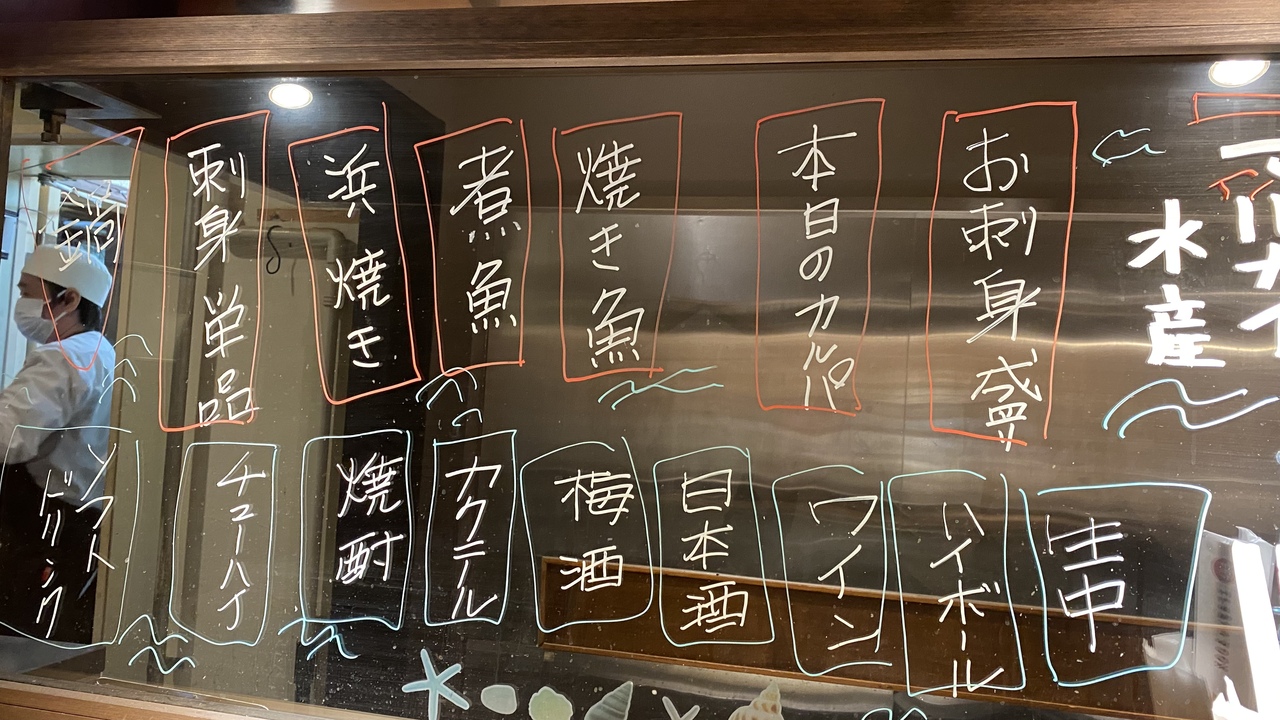 水産
お刺身盛
本日のカルパ
焼き魚
煮魚
浜焼き
刺身 単品
鍋
生中
ハイボール
ワイン
日本酒
梅酒
カクテール
焼酎
チューハイ
ソフト
ドリンク